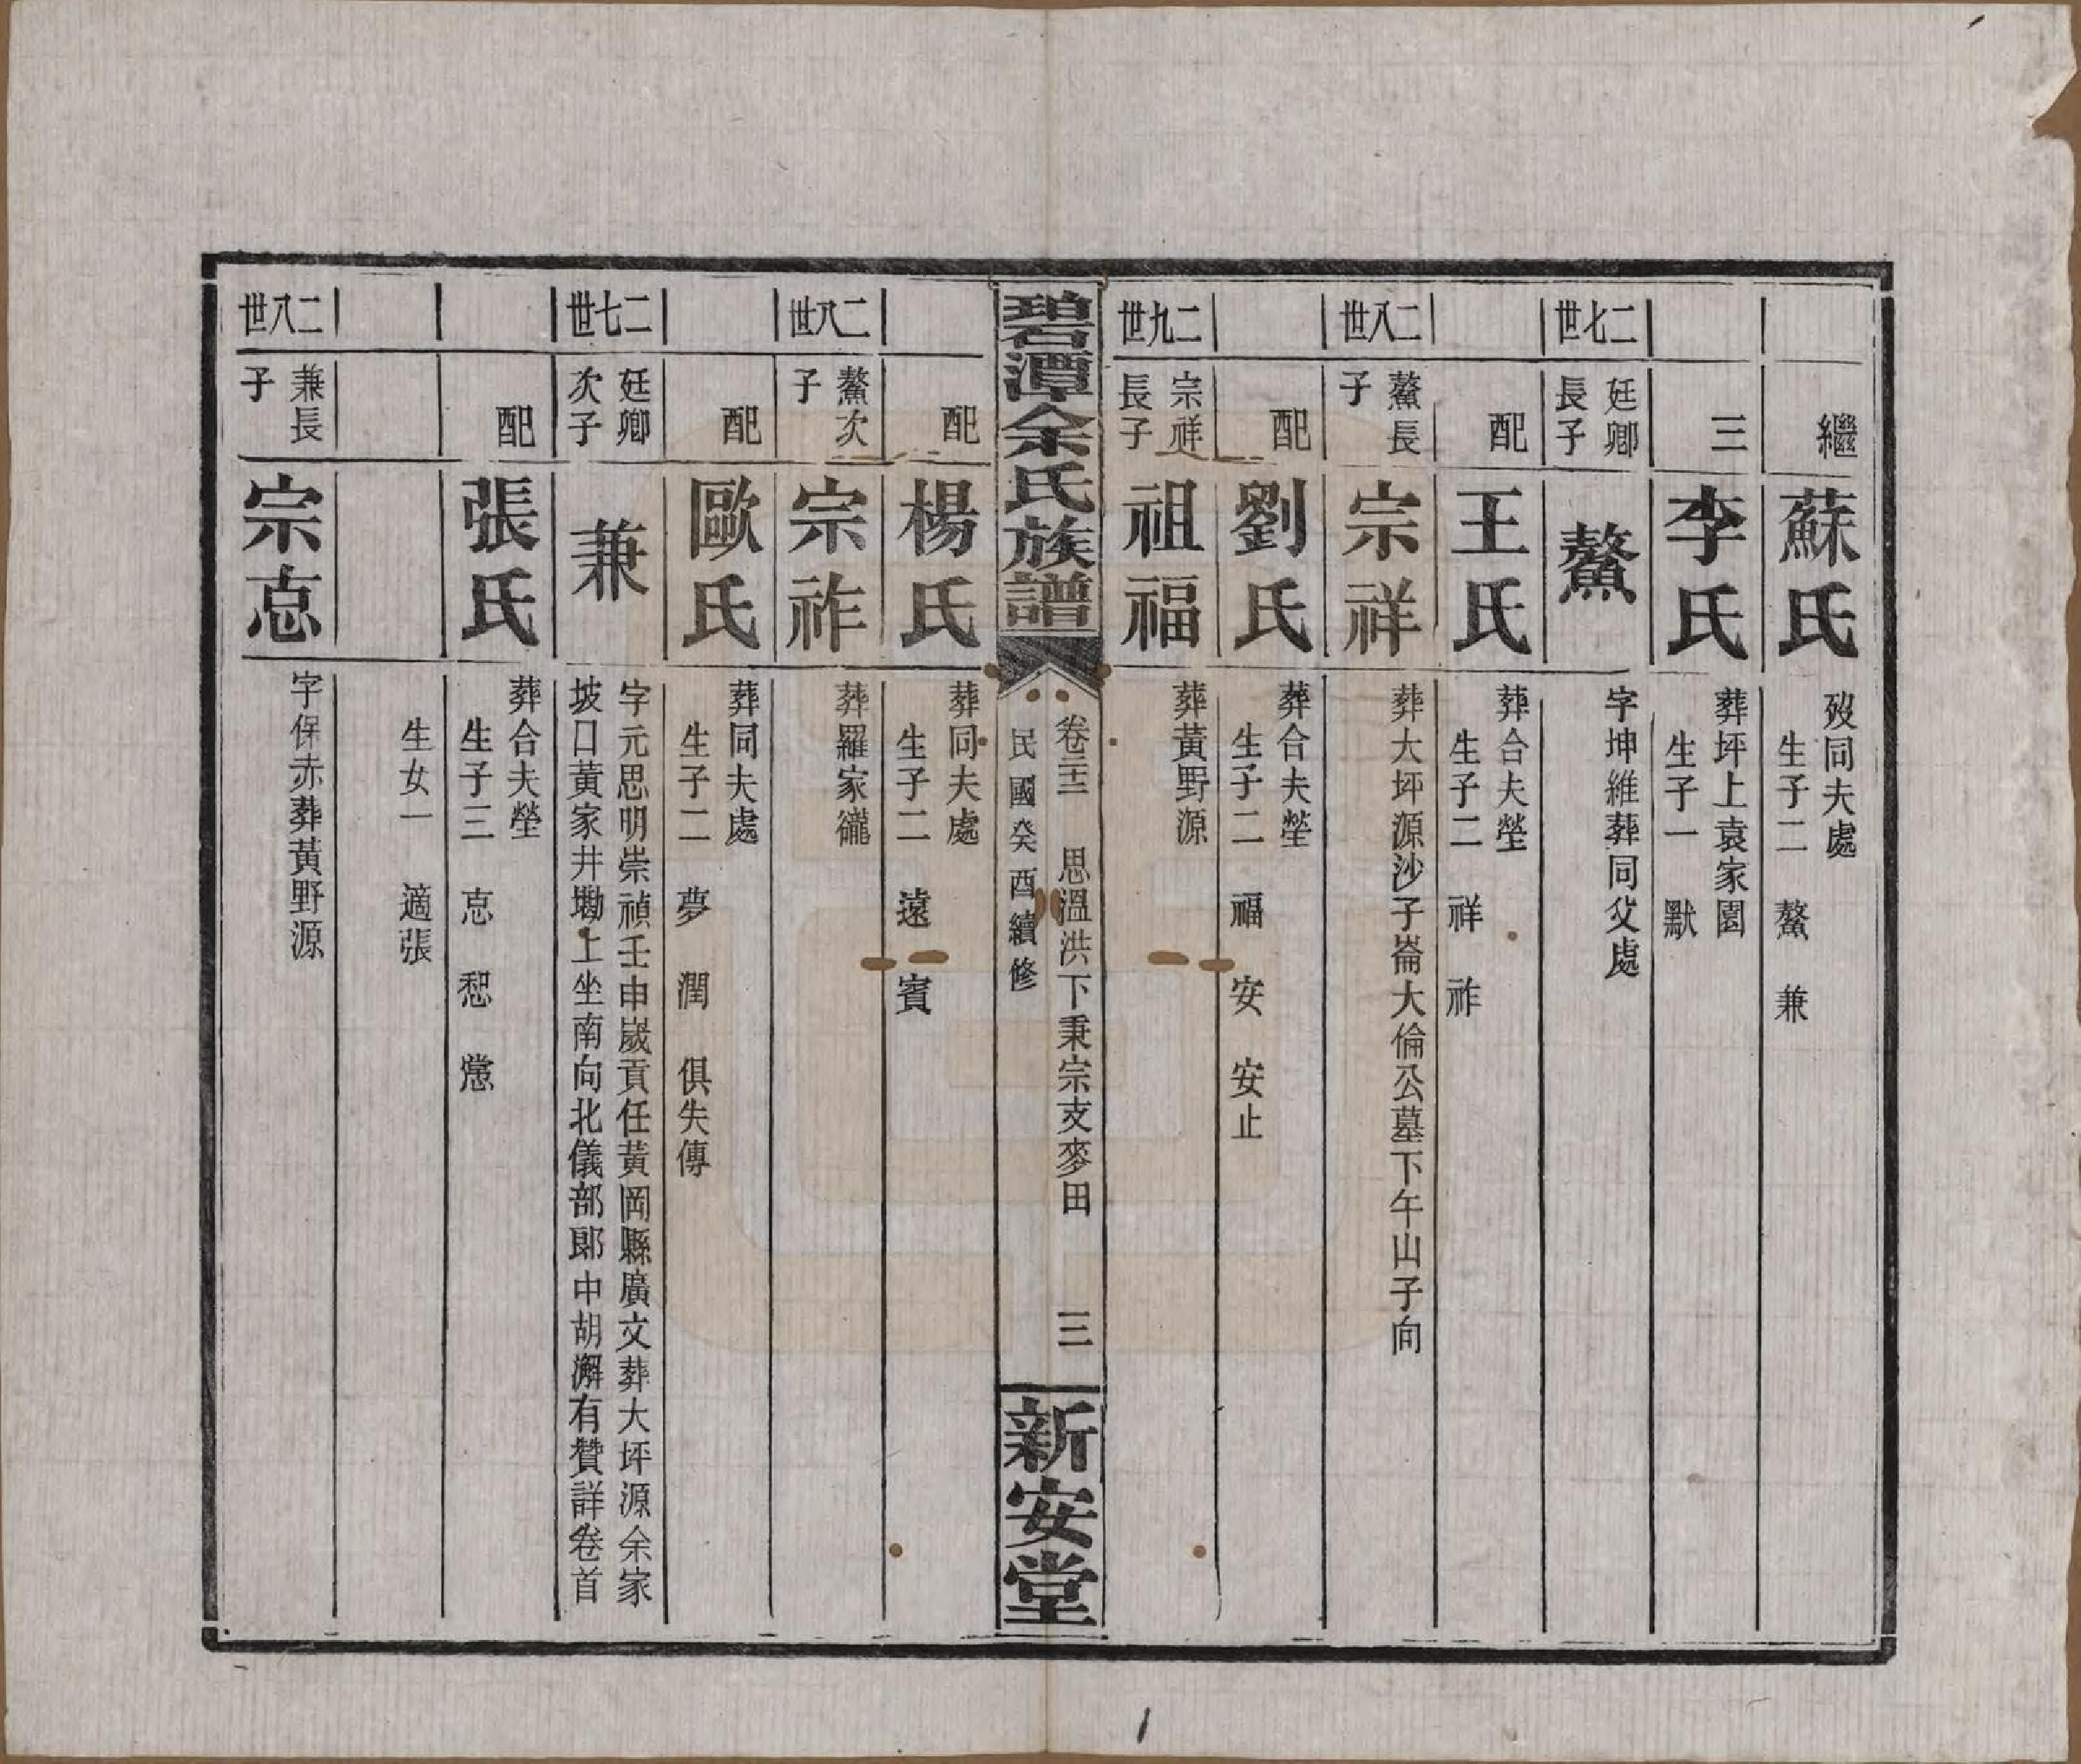 繼
蘇氏
歿同夫處
生子二 鰲 兼
三
李氏
葬坪上袁家園
生子一 默
二七世
廷卿
長子
鰲
字坤維葬同父處
配
王氏
葬合夫塋
生子二 祥 祚
二八世
鰲長
子
宗祥
葬大坪源沙子崙大倫公墓下午山子向
配
劉氏
葬合夫塋
生子二 福 安 安止
二九世
宗祥
長子
祖福
葬黃野源
碧潭余氏族譜
卷三三 思溫洪下秉宗支麥田 三
民國癸酉續修
新安堂
配
楊氏
葬同夫處
生子二 遠 賓
二八世
鰲次
子
宗祚
葬羅家巃
配
歐氏
葬同夫處
生子二 夢 潤 俱失傳
二七世
廷卿
次子
兼
字元思明崇禎壬申歲貢任黃岡縣廣文葬大坪源余家
坡口黃家井墈上坐南向北儀部郎中胡澥有贊詳卷首
配
張氏
葬合夫塋
生子三 㤙 惒 憊
生女一 適張
二八世
兼長
子
宗㤙
字保赤葬黃野源